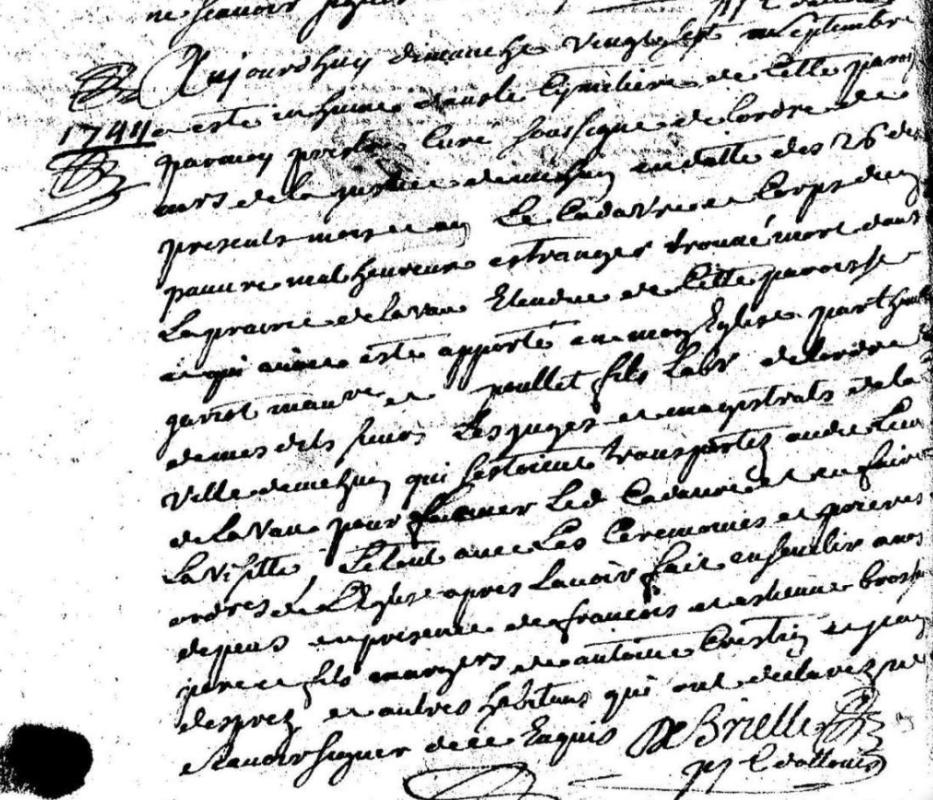 ne scavoir signer
Aujourdhuy dimanche vingt sept septembre
1744 a este inhumé dans le Cymetiere de Cette paroi
par moy prestre Curé soussigné de lordre de
mrs de la justice de mehun en datte des 26 des
presents mois et an Le Cadavre et Corps dun
pauvre malheureux estranger trouvé mort dans
La prairie de lavau Etendue de Cette paroisse
et qui auroit este apporté en mon Eglise par
et poullet fils Labr de lordre
de mes dits sieurs Les juges et magistrats de la
ville de mehun qui sestoient transportez audit Lieu
de Lavau pour Led Cadavre et en faire
La visitte Le tout avec Les Ceremonies et prieres
ordres de LEglise apres Lavoir fait ensevelir a nos
depens en presence de françois et estienne
pere et fils de antoine et jean
desprez et autres habitans qui ont declarez ne
scavoir signer de ce Enquis De Brielle